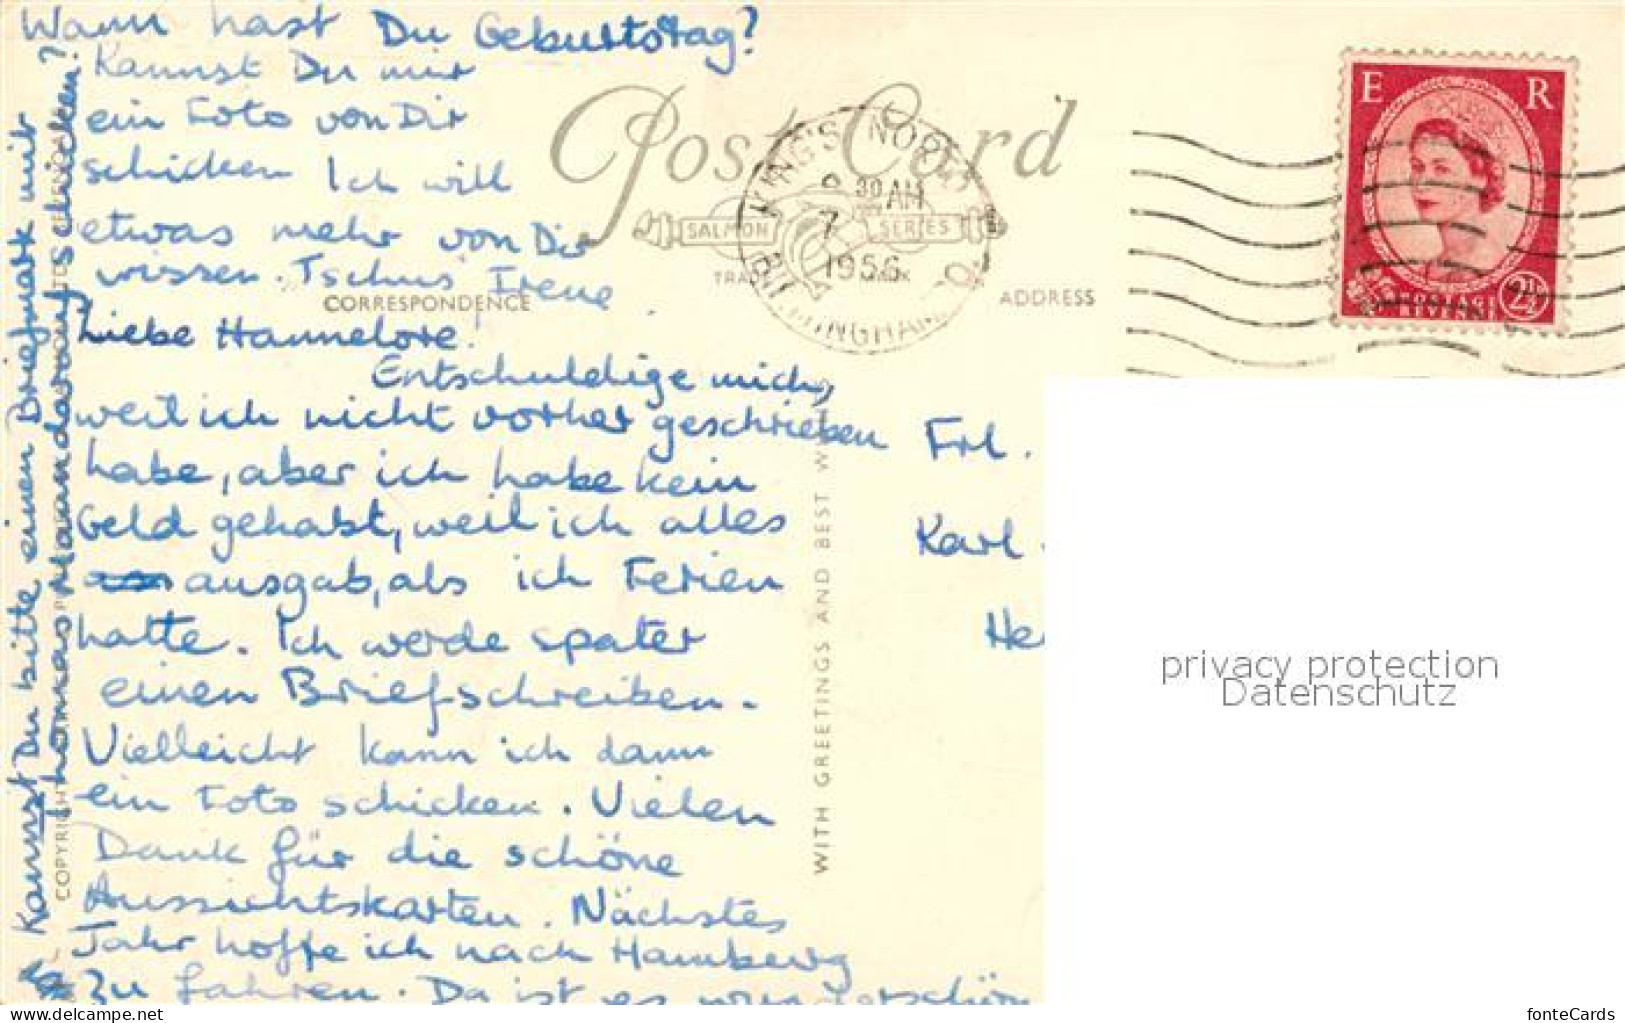 Wann hast Du Geburtstag?
Kannst Du mir
ein Foto von Dir
schicken Ich will
etwas mehr von Dir
wissen. Tschus Irene
Post Card
KING'S NORTON
30 AM
7
1956
BIRMINGHAM
SALMON SERIES
TRADE MARK
E R
REVENUE
2½
CORRESPONDENCE
ADDRESS
Liebe Hannelore!
Entschuldige mich,
weil ich nicht vorher geschrieben
habe, aber ich habe kein
Geld gehabt, weil ich alles
ausgab, als ich Ferien
hatte. Ich werde spater
einen Brief schreiben.
Vielleicht kann ich dann
ein Foto schicken. Vielen
Dank für die schöne
Aussichtskarten. Nächstes
Jahr hoffe ich nach Hamberg
zu fahren. Da ist es wunderschön
Kannst Du bitte einen Briefmark mit
Thomas Mann darauf schicken?
COPYRIGHT
WITH GREETINGS AND BEST W
Frl.
Karl
He
privacy protection
Datenschutz
www.delcampe.net
fonteCards